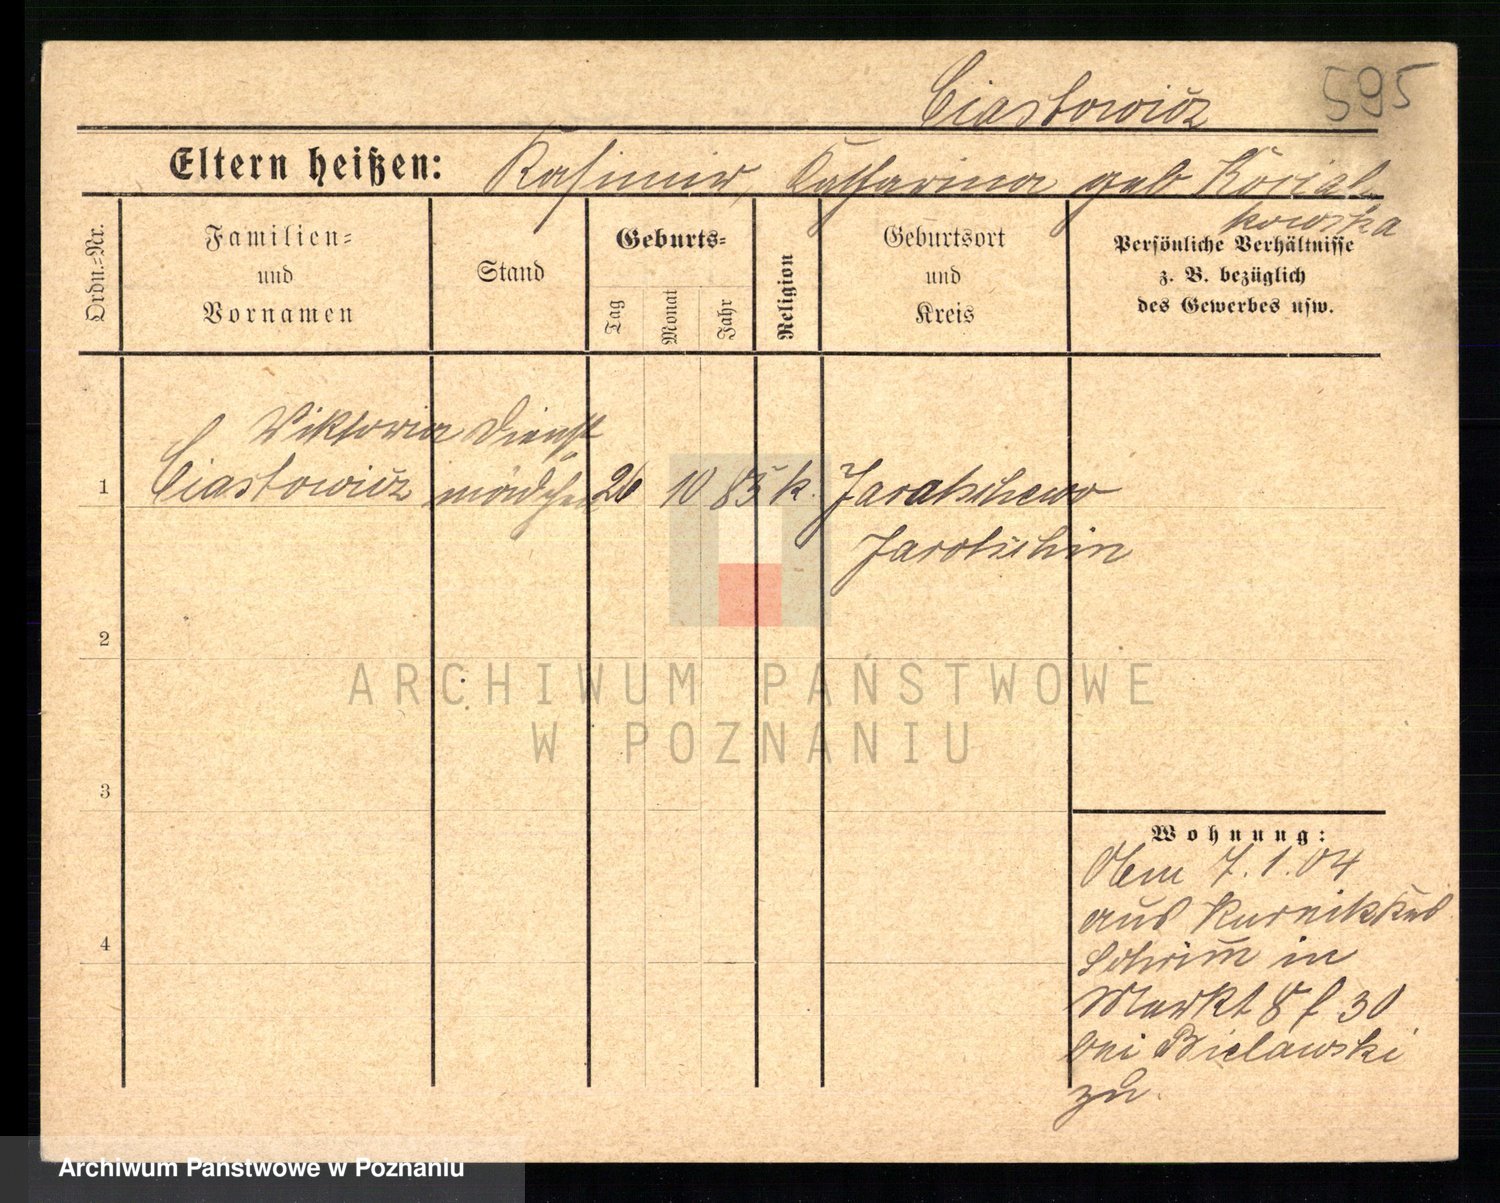 Ciastowicz 595
Eltern heißen: Kasimir, Katharina geb
kowska
Ordn.-Nr.
Familien-
und
Vornamen
Stand
Geburts-
Tag
Monat
Jahr
Religion
Geburtsort
und
Kreis
Persönliche Verhältnisse
z. B. bezüglich
des Gewerbes usw.
Viktoria Dienst
1 Ciastowicz mädchen 26 10 85 k. Jaratschewo
Jarotschin
2
3
4
Wohnung:
7.1.04
aus Kurnik Krs
Schrimm in
Markt 8 f 30
bei Bielawski
zu.
ARCHIWUM PAŃSTWOWE
W POZNANIU
Archiwum Państwowe w Poznaniu